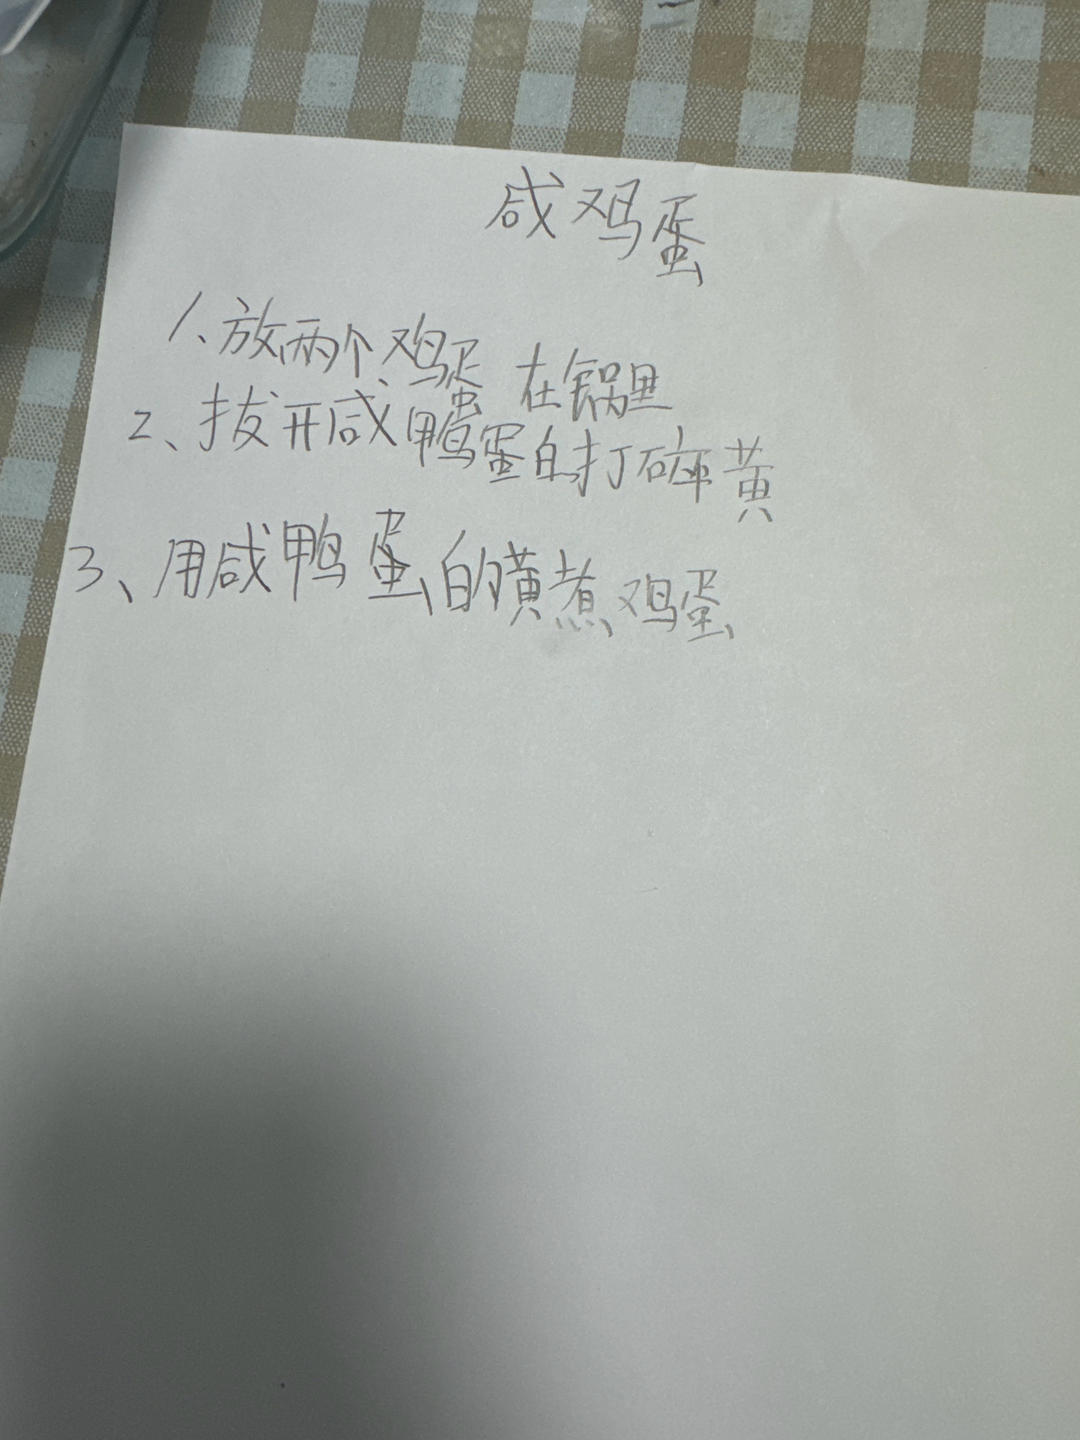 咸鸡蛋
1、放两个鸡蛋在锅里
2、拔开咸鸭蛋的打碎黄
3、用咸鸭蛋的黄煮鸡蛋